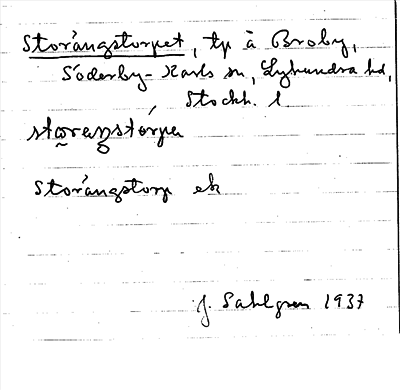 Storängstorpet, tp å Broby,
Söderby-Karls sn, Lyhundra hd,
Stockh. l
storaŋstórpə
Storängstorp ek
J. Sahlgren 1937